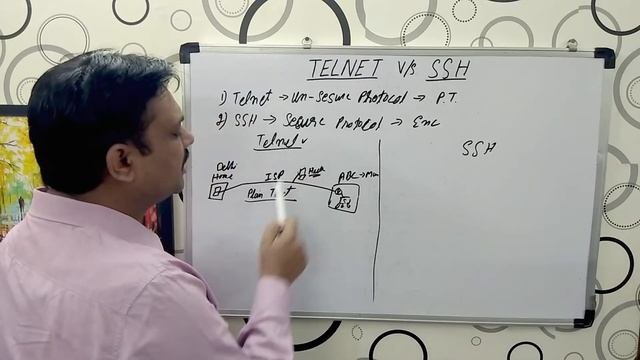 TELNET V/S SSH
1) Telnet → Un-Secure Protocol → P.T.
2) SSH → Secure Protocol → Enc
Telnet
SSH
Delhi
Home
ISP
Hack
ABC → Mum
Plan Text